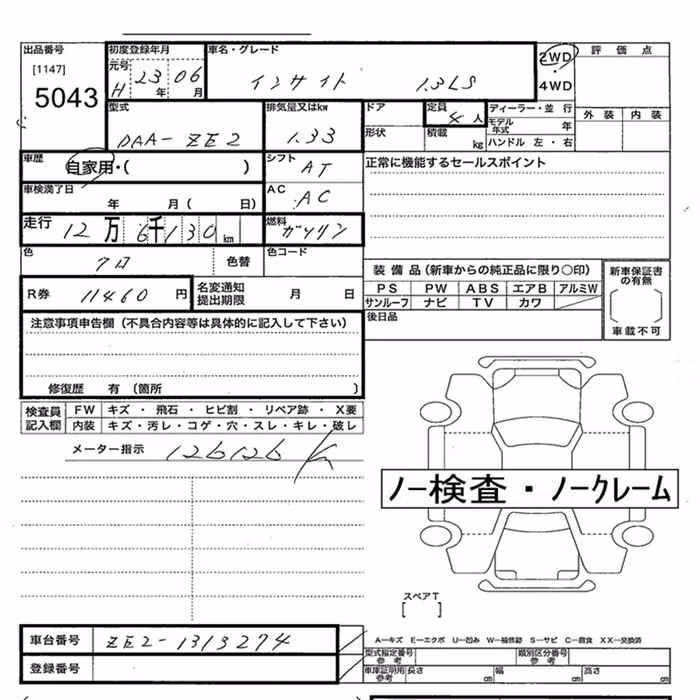 出品番号
[1147]
5043
初度登録年月
元号
H 23 年 06 月
車名・グレード
インサイト 1.3LS
2WD
・
4WD
評価点
外装 内装
型式
DAA-ZE2
排気量又はkw
1.33
ドア
形状
定員
人
積載
kg
ディーラー・並行
モデル年式 年
ハンドル 左・右
車歴
自家用・( )
シフト
AT
正常に機能するセールスポイント
車検満了日
年 月( 日)
AC
AC
走行
12万6千130km
燃料
ガソリン
色
クロ
色替
色コード
R券
11460円
名変通知
提出期限
月 日
装備品(新車からの純正品に限り○印)
PS PW ABS エアB アルミW
サンルーフ ナビ TV カワ
新車保証書
の有無
車載不可
後日品
注意事項申告欄(不具合内容等は具体的に記入して下さい)
修復歴 有(箇所 )
検査員
記入欄
FW キズ・飛石・ヒビ割・リペア跡・X要
内装 キズ・汚レ・コゲ・穴・スレ・キレ・破レ
メーター指示
126126 K
ノー検査・ノークレーム
スペアT
[ ]
車台番号
ZE2-1313274
登録番号
A…キズ E…エクボ U…凹み W…補修跡 S…サビ C…腐食 XX…交換済
型式指定番号
参考
類別区分番号
参考
車庫証明用
参考
長さ cm
幅 cm
高さ cm